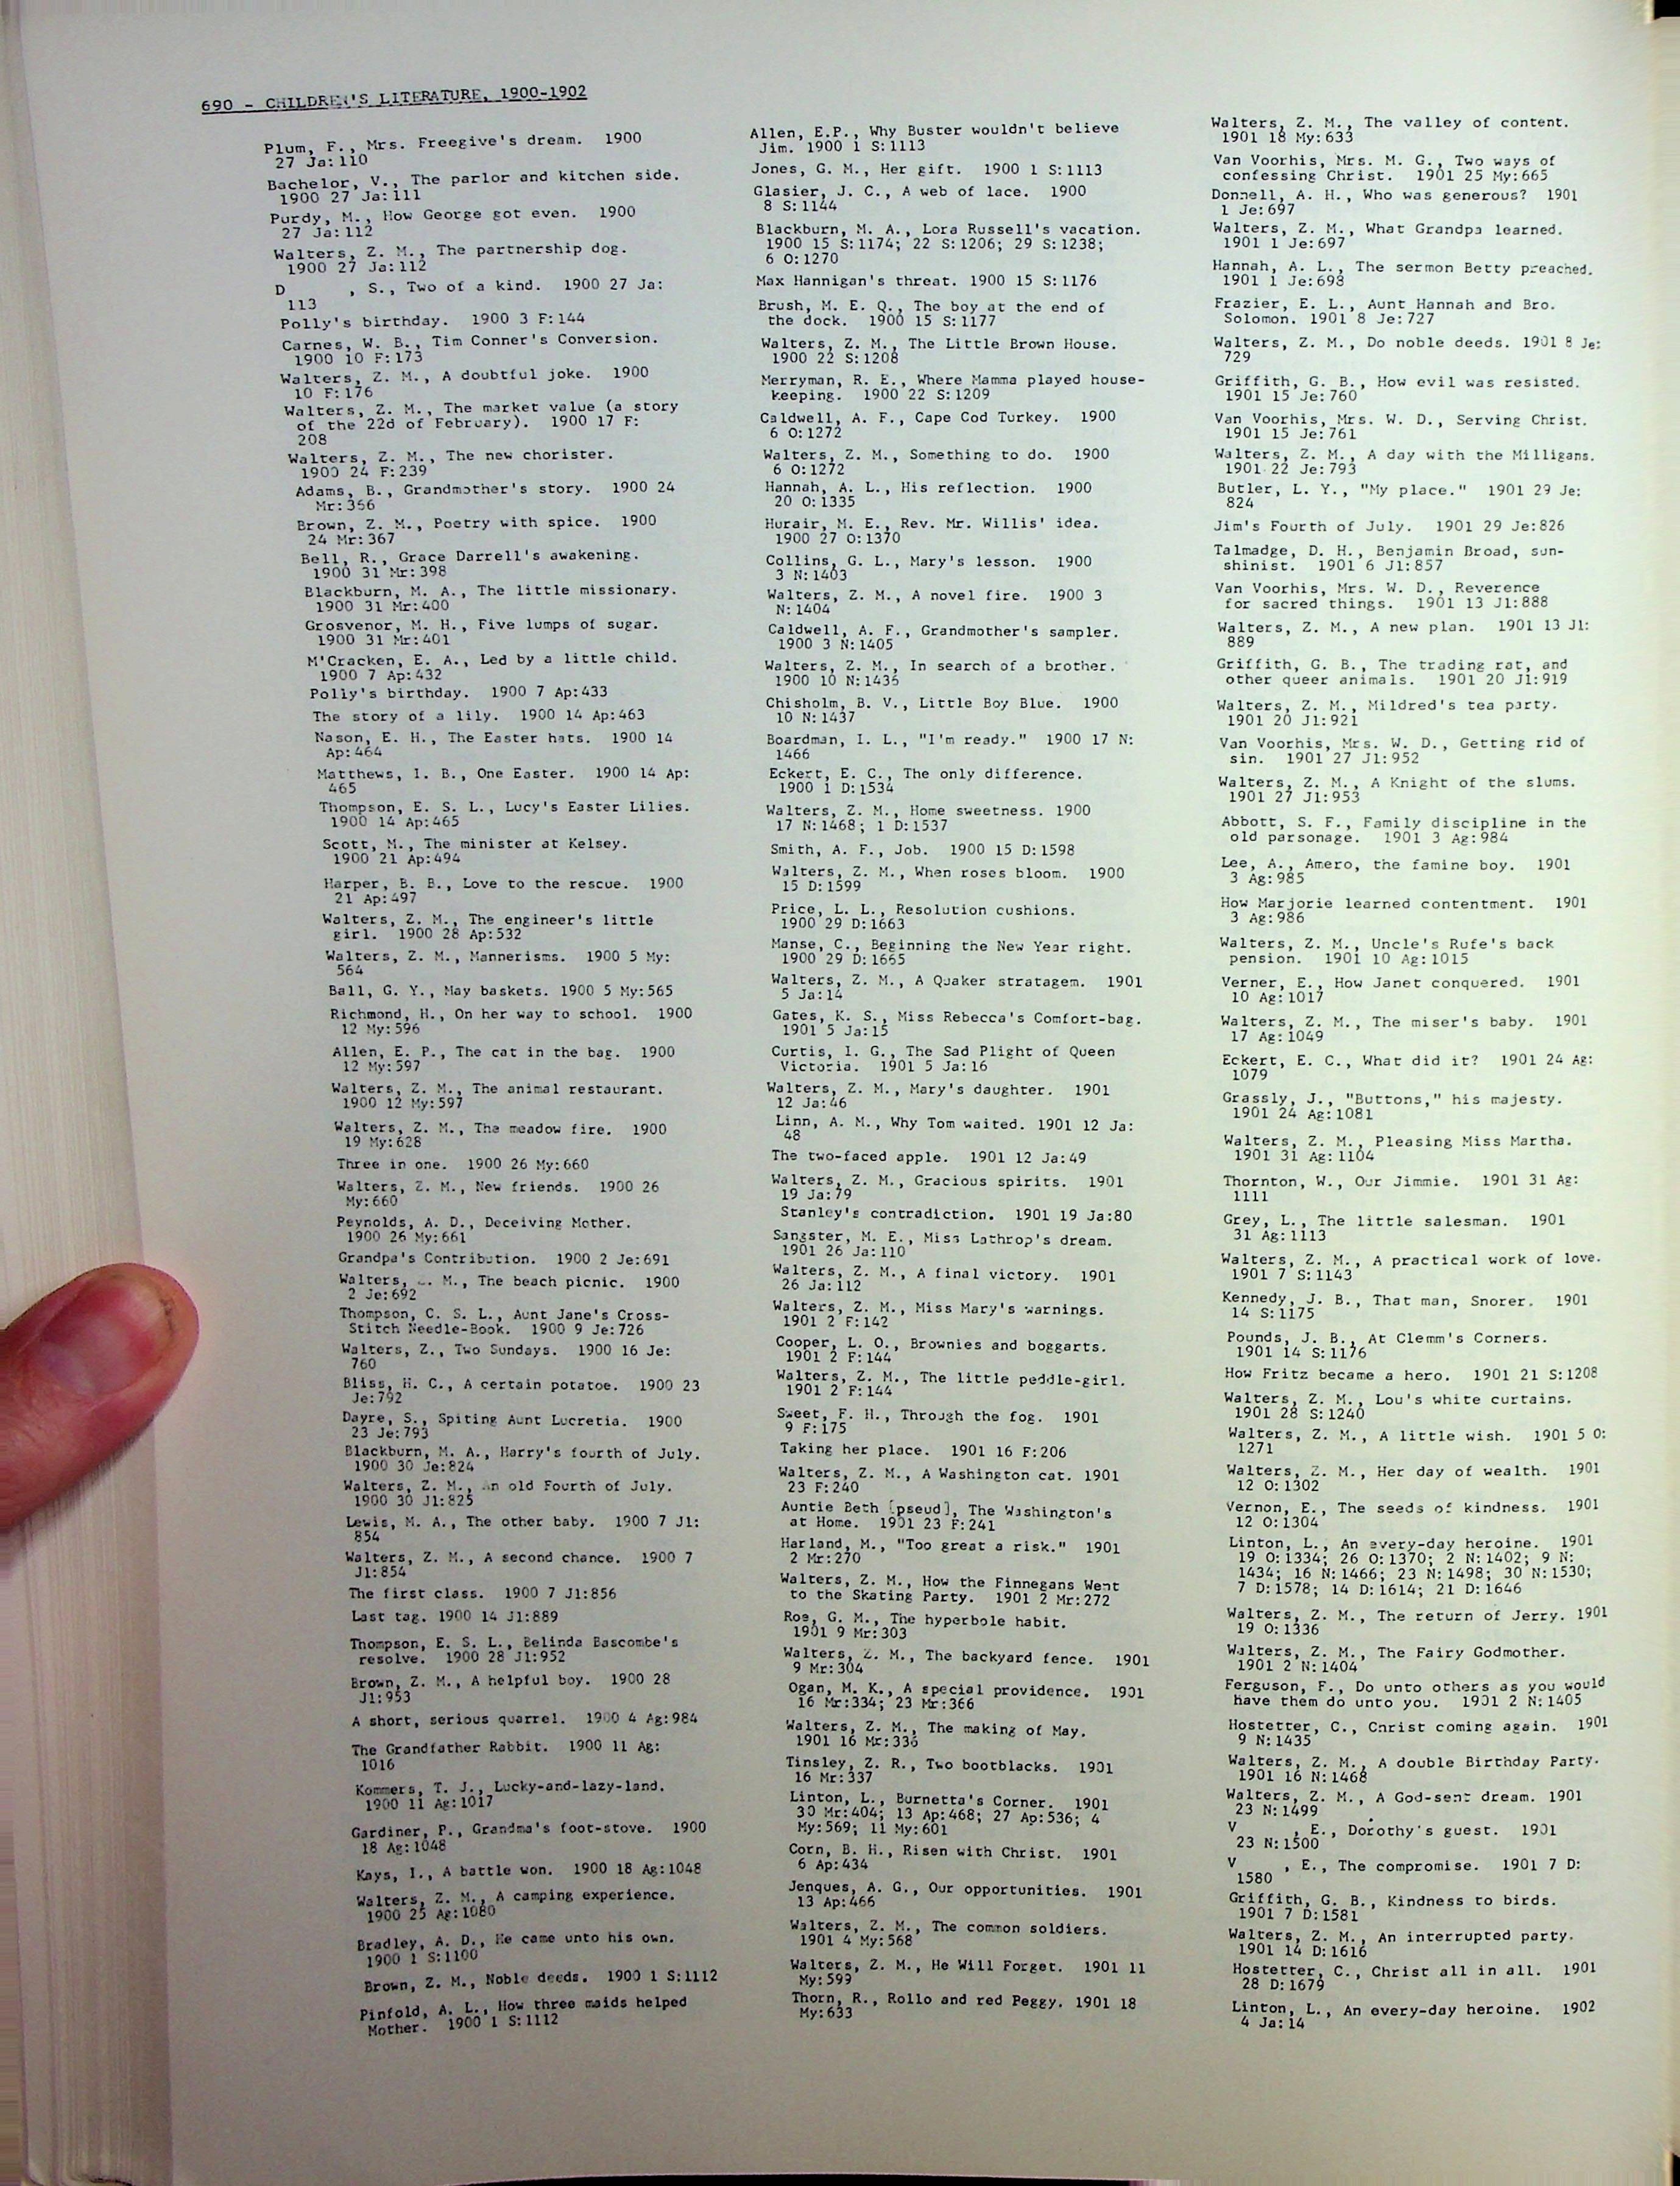 690 - CHILDREN'S LITERATURE, 1900-1902
Plum, F., Mrs. Freegive's dream. 1900
27 Ja:110
Bachelor, V., The parlor and kitchen side.
1900 27 Ja:111
Purdy, M., How George got even. 1900
27 Ja:112
Walters, Z. M., The partnership dog.
1900 27 Ja:112
D , S., Two of a kind. 1900 27 Ja:
113
Polly's birthday. 1900 3 F:144
Carnes, W. B., Tim Conner's Conversion.
1900 10 F:173
Walters, Z. M., A doubtful joke. 1900
10 F:176
Walters, Z. M., The market value (a story
of the 22d of February). 1900 17 F:
208
Walters, Z. M., The new chorister.
1900 24 F:239
Adams, B., Grandmother's story. 1900 24
Mr:366
Brown, Z. M., Poetry with spice. 1900
24 Mr:367
Bell, R., Grace Darrell's awakening.
1900 31 Mr:398
Blackburn, M. A., The little missionary.
1900 31 Mr:400
Grosvenor, M. H., Five lumps of sugar.
1900 31 Mr:401
M'Cracken, E. A., Led by a little child.
1900 7 Ap:432
Polly's birthday. 1900 7 Ap:433
The story of a lily. 1900 14 Ap:463
Nason, E. H., The Easter hats. 1900 14
Ap:464
Matthews, I. B., One Easter. 1900 14 Ap:
465
Thompson, E. S. L., Lucy's Easter Lilies.
1900 14 Ap:465
Scott, M., The minister at Kelsey.
1900 21 Ap:494
Harper, B. B., Love to the rescue. 1900
21 Ap:497
Walters, Z. M., The engineer's little
girl. 1900 28 Ap:532
Walters, Z. M., Mannerisms. 1900 5 My:
564
Ball, G. Y., May baskets. 1900 5 My:565
Richmond, H., On her way to school. 1900
12 My:596
Allen, E. P., The cat in the bag. 1900
12 My:597
Walters, Z. M., The animal restaurant.
1900 12 My:597
Walters, Z. M., The meadow fire. 1900
19 My:628
Three in one. 1900 26 My:660
Walters, Z. M., New friends. 1900 26
My:660
Peynolds, A. D., Deceiving Mother.
1900 26 My:661
Grandpa's Contribution. 1900 2 Je:691
Walters, Z. M., The beach picnic. 1900
2 Je:692
Thompson, C. S. L., Aunt Jane's Cross-
Stitch Needle-Book. 1900 9 Je:726
Walters, Z., Two Sundays. 1900 16 Je:
760
Bliss, H. C., A certain potatoe. 1900 23
Je:792
Dayre, S., Spiting Aunt Lucretia. 1900
23 Je:793
Blackburn, M. A., Harry's fourth of July.
1900 30 Je:824
Walters, Z. M., An old Fourth of July.
1900 30 Jl:825
Lewis, M. A., The other baby. 1900 7 Jl:
854
Walters, Z. M., A second chance. 1900 7
Jl:854
The first class. 1900 7 Jl:856
Last tag. 1900 14 Jl:889
Thompson, E. S. L., Belinda Bascombe's
resolve. 1900 28 Jl:952
Brown, Z. M., A helpful boy. 1900 28
Jl:953
A short, serious quarrel. 1900 4 Ag:984
The Grandfather Rabbit. 1900 11 Ag:
1016
Kommers, T. J., Lucky-and-lazy-land.
1900 11 Ag:1017
Gardiner, P., Grandma's foot-stove. 1900
18 Ag:1048
Kays, I., A battle won. 1900 18 Ag:1048
Walters, Z. M., A camping experience.
1900 25 Ag:1080
Bradley, A. D., He came unto his own.
1900 1 S:1100
Brown, Z. M., Noble deeds. 1900 1 S:1112
Pinfold, A. L., How three maids helped
Mother. 1900 1 S:1112
Allen, E.P., Why Buster wouldn't believe
Jim. 1900 1 S:1113
Jones, G. M., Her gift. 1900 1 S:1113
Glasier, J. C., A web of lace. 1900
8 S:1144
Blackburn, M. A., Lora Russell's vacation.
1900 15 S:1174; 22 S:1206; 29 S:1238;
6 O:1270
Max Hannigan's threat. 1900 15 S:1176
Brush, M. E. Q., The boy at the end of
the dock. 1900 15 S:1177
Walters, Z. M., The Little Brown House.
1900 22 S:1208
Merryman, R. E., Where Mamma played house-
keeping. 1900 22 S:1209
Caldwell, A. F., Cape Cod Turkey. 1900
6 O:1272
Walters, Z. M., Something to do. 1900
6 O:1272
Hannah, A. L., His reflection. 1900
20 O:1335
Hurair, M. E., Rev. Mr. Willis' idea.
1900 27 O:1370
Collins, G. L., Mary's lesson. 1900
3 N:1403
Walters, Z. M., A novel fire. 1900 3
N:1404
Caldwell, A. F., Grandmother's sampler.
1900 3 N:1405
Walters, Z. M., In search of a brother.
1900 10 N:1436
Chisholm, B. V., Little Boy Blue. 1900
10 N:1437
Boardman, I. L., "I'm ready." 1900 17 N:
1466
Eckert, E. C., The only difference.
1900 1 D:1534
Walters, Z. M., Home sweetness. 1900
17 N:1468; 1 D:1537
Smith, A. F., Job. 1900 15 D:1598
Walters, Z. M., When roses bloom. 1900
15 D:1599
Price, L. L., Resolution cushions.
1900 29 D:1663
Manse, C., Beginning the New Year right.
1900 29 D:1665
Walters, Z. M., A Quaker stratagem. 1901
5 Ja:14
Gates, K. S., Miss Rebecca's Comfort-bag.
1901 5 Ja:15
Curtis, I. G., The Sad Plight of Queen
Victoria. 1901 5 Ja:16
Walters, Z. M., Mary's daughter. 1901
12 Ja:46
Linn, A. M., Why Tom waited. 1901 12 Ja:
48
The two-faced apple. 1901 12 Ja:49
Walters, Z. M., Gracious spirits. 1901
19 Ja:79
Stanley's contradiction. 1901 19 Ja:80
Sangster, M. E., Miss Lathrop's dream.
1901 26 Ja:110
Walters, Z. M., A final victory. 1901
26 Ja:112
Walters, Z. M., Miss Mary's warnings.
1901 2 F:142
Cooper, L. O., Brownies and boggarts.
1901 2 F:144
Walters, Z. M., The little peddle-girl.
1901 2 F:144
Sweet, F. H., Through the fog. 1901
9 F:175
Taking her place. 1901 16 F:206
Walters, Z. M., A Washington cat. 1901
23 F:240
Auntie Beth [pseud], The Washington's
at Home. 1901 23 F:241
Harland, M., "Too great a risk." 1901
2 Mr:270
Walters, Z. M., How the Finnegans Went
to the Skating Party. 1901 2 Mr:272
Roe, G. M., The hyperbole habit.
1901 9 Mr:303
Walters, Z. M., The backyard fence. 1901
9 Mr:304
Ogan, M. K., A special providence. 1901
16 Mr:334; 23 Mr:366
Walters, Z. M., The making of May.
1901 16 Mr:336
Tinsley, Z. R., Two bootblacks. 1901
16 Mr:337
Linton, L., Burnetta's Corner. 1901
30 Mr:404; 13 Ap:468; 27 Ap:536; 4
My:569; 11 My:601
Corn, B. H., Risen with Christ. 1901
6 Ap:434
Jenques, A. G., Our opportunities. 1901
13 Ap:466
Walters, Z. M., The common soldiers.
1901 4 My:568
Walters, Z. M., He Will Forget. 1901 11
My:599
Thorn, R., Rollo and red Peggy. 1901 18
My:633
Walters, Z. M., The valley of content.
1901 18 My:633
Van Voorhis, Mrs. M. G., Two ways of
confessing Christ. 1901 25 My:665
Donnell, A. H., Who was generous? 1901
1 Je:697
Walters, Z. M., What Grandpa learned.
1901 1 Je:697
Hannah, A. L., The sermon Betty preached.
1901 1 Je:698
Frazier, E. L., Aunt Hannah and Bro.
Solomon. 1901 8 Je:727
Walters, Z. M., Do noble deeds. 1901 8 Je:
729
Griffith, G. B., How evil was resisted.
1901 15 Je:760
Van Voorhis, Mrs. W. D., Serving Christ.
1901 15 Je:761
Walters, Z. M., A day with the Milligans.
1901 22 Je:793
Butler, L. Y., "My place." 1901 29 Je:
824
Jim's Fourth of July. 1901 29 Je:826
Talmadge, D. H., Benjamin Broad, sun-
shinist. 1901 6 Jl:857
Van Voorhis, Mrs. W. D., Reverence
for sacred things. 1901 13 Jl:888
Walters, Z. M., A new plan. 1901 13 Jl:
889
Griffith, G. B., The trading rat, and
other queer animals. 1901 20 Jl:919
Walters, Z. M., Mildred's tea party.
1901 20 Jl:921
Van Voorhis, Mrs. W. D., Getting rid of
sin. 1901 27 Jl:952
Walters, Z. M., A Knight of the slums.
1901 27 Jl:953
Abbott, S. F., Family discipline in the
old parsonage. 1901 3 Ag:984
Lee, A., Amero, the famine boy. 1901
3 Ag:985
How Marjorie learned contentment. 1901
3 Ag:986
Walters, Z. M., Uncle's Rufe's back
pension. 1901 10 Ag:1015
Verner, E., How Janet conquered. 1901
10 Ag:1017
Walters, Z. M., The miser's baby. 1901
17 Ag:1049
Eckert, E. C., What did it? 1901 24 Ag:
1079
Grassly, J., "Buttons," his majesty.
1901 24 Ag:1081
Walters, Z. M., Pleasing Miss Martha.
1901 31 Ag:1104
Thornton, W., Our Jimmie. 1901 31 Ag:
1111
Grey, L., The little salesman. 1901
31 Ag:1113
Walters, Z. M., A practical work of love.
1901 7 S:1143
Kennedy, J. B., That man, Snorer. 1901
14 S:1175
Pounds, J. B., At Clemm's Corners.
1901 14 S:1176
How Fritz became a hero. 1901 21 S:1208
Walters, Z. M., Lou's white curtains.
1901 28 S:1240
Walters, Z. M., A little wish. 1901 5 O:
1271
Walters, Z. M., Her day of wealth. 1901
12 O:1302
Vernon, E., The seeds of kindness. 1901
12 O:1304
Linton, L., An every-day heroine. 1901
19 O:1334; 26 O:1370; 2 N:1402; 9 N:
1434; 16 N:1466; 23 N:1498; 30 N:1530;
7 D:1578; 14 D:1614; 21 D:1646
Walters, Z. M., The return of Jerry. 1901
19 O:1336
Walters, Z. M., The Fairy Godmother.
1901 2 N:1404
Ferguson, F., Do unto others as you would
have them do unto you. 1901 2 N:1405
Hostetter, C., Christ coming again. 1901
9 N:1435
Walters, Z. M., A double Birthday Party.
1901 16 N:1468
Walters, Z. M., A God-sent dream. 1901
23 N:1499
V , E., Dorothy's guest. 1901
23 N:1500
V , E., The compromise. 1901 7 D:
1580
Griffith, G. B., Kindness to birds.
1901 7 D:1581
Walters, Z. M., An interrupted party.
1901 14 D:1616
Hostetter, C., Christ all in all. 1901
28 D:1679
Linton, L., An every-day heroine. 1902
4 Ja:14